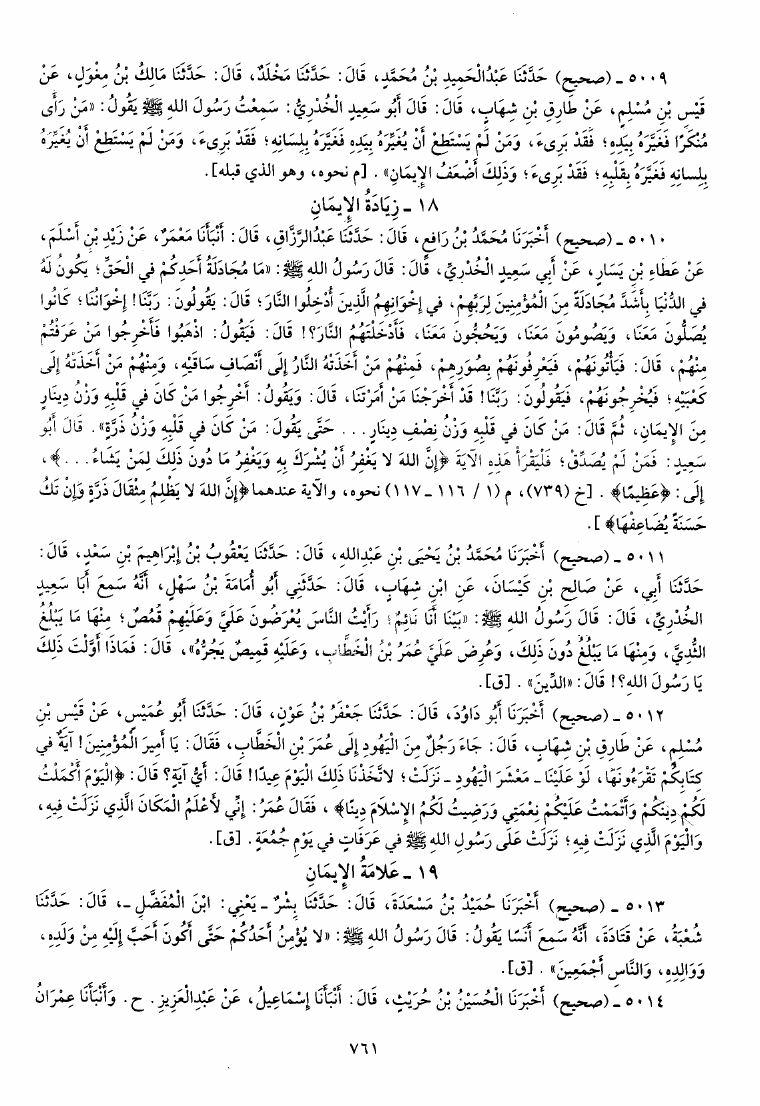 ٥٠٠٩ ـ (صحيح) حَدَّثَنَا عَبْدُالْحَمِيدِ بْنُ مُحَمَّدٍ، قَالَ: حَدَّثَنَا مَخْلَدٌ، قَالَ: حَدَّثَنَا مَالِكُ بْنُ مِغْوَلٍ، عَنْ
قَيْسِ بْنِ مُسْلِمٍ، عَنْ طَارِقِ بْنِ شِهَابٍ، قَالَ: قَالَ أَبُو سَعِيدٍ الْخُدْرِيُّ: سَمِعْتُ رَسُولَ اللهِ ﷺ يَقُولُ: «مَنْ رَأَى
مُنْكَرًا فَغَيَّرَهُ بِيَدِهِ؛ فَقَدْ بَرِىءَ، وَمَنْ لَمْ يَسْتَطِعْ أَنْ يُغَيِّرَهُ بِيَدِهِ فَغَيَّرَهُ بِلِسَانِهِ؛ فَقَدْ بَرِىءَ، وَمَنْ لَمْ يَسْتَطِعْ أَنْ يُغَيِّرَهُ
بِلِسَانِهِ فَغَيَّرَهُ بِقَلْبِهِ؛ فَقَدْ بَرِىءَ؛ وَذَلِكَ أَضْعَفُ الإِيمَانِ». [م نحوه، وهو الذي قبله].
١٨ ـ زِيَادَةُ الإِيمَانِ
٥٠١٠ ـ (صحيح) أَخْبَرَنَا مُحَمَّدُ بْنُ رَافِعٍ، قَالَ: حَدَّثَنَا عَبْدُالرَّزَّاقِ، قَالَ: أَنْبَأَنَا مَعْمَرٌ، عَنْ زَيْدِ بْنِ أَسْلَمَ،
عَنْ عَطَاءِ بْنِ يَسَارٍ، عَنْ أَبِي سَعِيدٍ الْخُدْرِيِّ، قَالَ: قَالَ رَسُولُ اللهِ ﷺ: «مَا مُجَادَلَةُ أَحَدِكُمْ فِي الْحَقِّ؛ يَكُونُ لَهُ
فِي الدُّنْيَا بِأَشَدَّ مُجَادَلَةً مِنَ الْمُؤْمِنِينَ لِرَبِّهِمْ، فِي إِخْوَانِهِمُ الَّذِينَ أُدْخِلُوا النَّارَ؛ قَالَ: يَقُولُونَ: رَبَّنَا! إِخْوَانُنَا؛ كَانُوا
يُصَلُّونَ مَعَنَا، وَيَصُومُونَ مَعَنَا، وَيَحُجُّونَ مَعَنَا، فَأَدْخَلْتَهُمُ النَّارَ؟! قَالَ: فَيَقُولُ: اذْهَبُوا فَأَخْرِجُوا مَنْ عَرَفْتُمْ
مِنْهُمْ، قَالَ: فَيَأْتُونَهُمْ، فَيَعْرِفُونَهُمْ بِصُوَرِهِمْ، فَمِنْهُمْ مَنْ أَخَذَتْهُ النَّارُ إِلَى أَنْصَافِ سَاقَيْهِ، وَمِنْهُمْ مَنْ أَخَذَتْهُ إِلَى
كَعْبَيْهِ؛ فَيُخْرِجُونَهُمْ، فَيَقُولُونَ: رَبَّنَا! قَدْ أَخْرَجْنَا مَنْ أَمَرْتَنَا، قَالَ: وَيَقُولُ: أَخْرِجُوا مَنْ كَانَ فِي قَلْبِهِ وَزْنُ دِينَارٍ
مِنَ الإِيمَانِ، ثُمَّ قَالَ: مَنْ كَانَ فِي قَلْبِهِ وَزْنُ نِصْفِ دِينَارٍ... حَتَّى يَقُولَ: مَنْ كَانَ فِي قَلْبِهِ وَزْنُ ذَرَّةٍ». قَالَ أَبُو
سَعِيدٍ: فَمَنْ لَمْ يُصَدِّقْ؛ فَلْيَقْرَأْ هَذِهِ الآيَةَ ﴿إِنَّ اللهَ لا يَغْفِرُ أَنْ يُشْرَكَ بِهِ وَيَغْفِرُ مَا دُونَ ذَلِكَ لِمَنْ يَشَاءُ...﴾،
إِلَى: ﴿عَظِيمًا﴾. [خ (٧٣٩)، م (١ / ١١٦ ـ ١١٧) نحوه، والآية عندهما ﴿إِنَّ اللهَ لا يَظْلِمُ مِثْقَالَ ذَرَّةٍ وَإِنْ تَكُ
حَسَنَةً يُضَاعِفْهَا﴾].
٥٠١١ ـ (صحيح) أَخْبَرَنَا مُحَمَّدُ بْنُ يَحْيَى بْنِ عَبْدِاللهِ، قَالَ: حَدَّثَنَا يَعْقُوبُ بْنُ إِبْرَاهِيمَ بْنِ سَعْدٍ، قَالَ:
حَدَّثَنَا أَبِي، عَنْ صَالِحِ بْنِ كَيْسَانَ، عَنِ ابْنِ شِهَابٍ، قَالَ: حَدَّثَنِي أَبُو أُمَامَةَ بْنُ سَهْلٍ، أَنَّهُ سَمِعَ أَبَا سَعِيدٍ
الْخُدْرِيَّ، قَالَ: قَالَ رَسُولُ اللهِ ﷺ: «بَيْنَا أَنَا نَائِمٌ؛ رَأَيْتُ النَّاسَ يُعْرَضُونَ عَلَيَّ وَعَلَيْهِمْ قُمُصٌ؛ مِنْهَا مَا يَبْلُغُ
الثُّدِيَّ، وَمِنْهَا مَا يَبْلُغُ دُونَ ذَلِكَ، وَعُرِضَ عَلَيَّ عُمَرُ بْنُ الْخَطَّابِ، وَعَلَيْهِ قَمِيصٌ يَجُرُّهُ»، قَالَ: فَمَاذَا أَوَّلْتَ ذَلِكَ
يَا رَسُولَ اللهِ؟! قَالَ: «الدِّينَ». [ق].
٥٠١٢ ـ (صحيح) أَخْبَرَنَا أَبُو دَاوُدَ، قَالَ: حَدَّثَنَا جَعْفَرُ بْنُ عَوْنٍ، قَالَ: حَدَّثَنَا أَبُو عُمَيْسٍ، عَنْ قَيْسِ بْنِ
مُسْلِمٍ، عَنْ طَارِقِ بْنِ شِهَابٍ، قَالَ: جَاءَ رَجُلٌ مِنَ الْيَهُودِ إِلَى عُمَرَ بْنِ الْخَطَّابِ، فَقَالَ: يَا أَمِيرَ الْمُؤْمِنِينَ! آيَةٌ فِي
كِتَابِكُمْ تَقْرَءُونَهَا، لَوْ عَلَيْنَا ـ مَعْشَرَ الْيَهُودِ ـ نَزَلَتْ؛ لاتَّخَذْنَا ذَلِكَ الْيَوْمَ عِيدًا! قَالَ: أَيُّ آيَةٍ؟ قَالَ: ﴿الْيَوْمَ أَكْمَلْتُ
لَكُمْ دِينَكُمْ وَأَتْمَمْتُ عَلَيْكُمْ نِعْمَتِي وَرَضِيتُ لَكُمُ الإِسْلامَ دِينًا﴾، فَقَالَ عُمَرُ: إِنِّي لأَعْلَمُ الْمَكَانَ الَّذِي نَزَلَتْ فِيهِ،
وَالْيَوْمَ الَّذِي نَزَلَتْ فِيهِ؛ نَزَلَتْ عَلَى رَسُولِ اللهِ ﷺ فِي عَرَفَاتٍ فِي يَوْمِ جُمُعَةٍ. [ق].
١٩ ـ عَلامَةُ الإِيمَانِ
٥٠١٣ ـ (صحيح) أَخْبَرَنَا حُمَيْدُ بْنُ مَسْعَدَةَ، قَالَ: حَدَّثَنَا بِشْرٌ ـ يَعْنِي: ابْنَ الْمُفَضَّلِ ـ، قَالَ: حَدَّثَنَا
شُعْبَةُ، عَنْ قَتَادَةَ، أَنَّهُ سَمِعَ أَنَسًا يَقُولُ: قَالَ رَسُولُ اللهِ ﷺ: «لا يُؤْمِنُ أَحَدُكُمْ حَتَّى أَكُونَ أَحَبَّ إِلَيْهِ مِنْ وَلَدِهِ،
وَوَالِدِهِ، وَالنَّاسِ أَجْمَعِينَ». [ق].
٥٠١٤ ـ (صحيح) أَخْبَرَنَا الْحُسَيْنُ بْنُ حُرَيْثٍ، قَالَ: أَنْبَأَنَا إِسْمَاعِيلُ، عَنْ عَبْدِالْعَزِيزِ. ح. وَأَنْبَأَنَا عِمْرَانُ
٧٦١